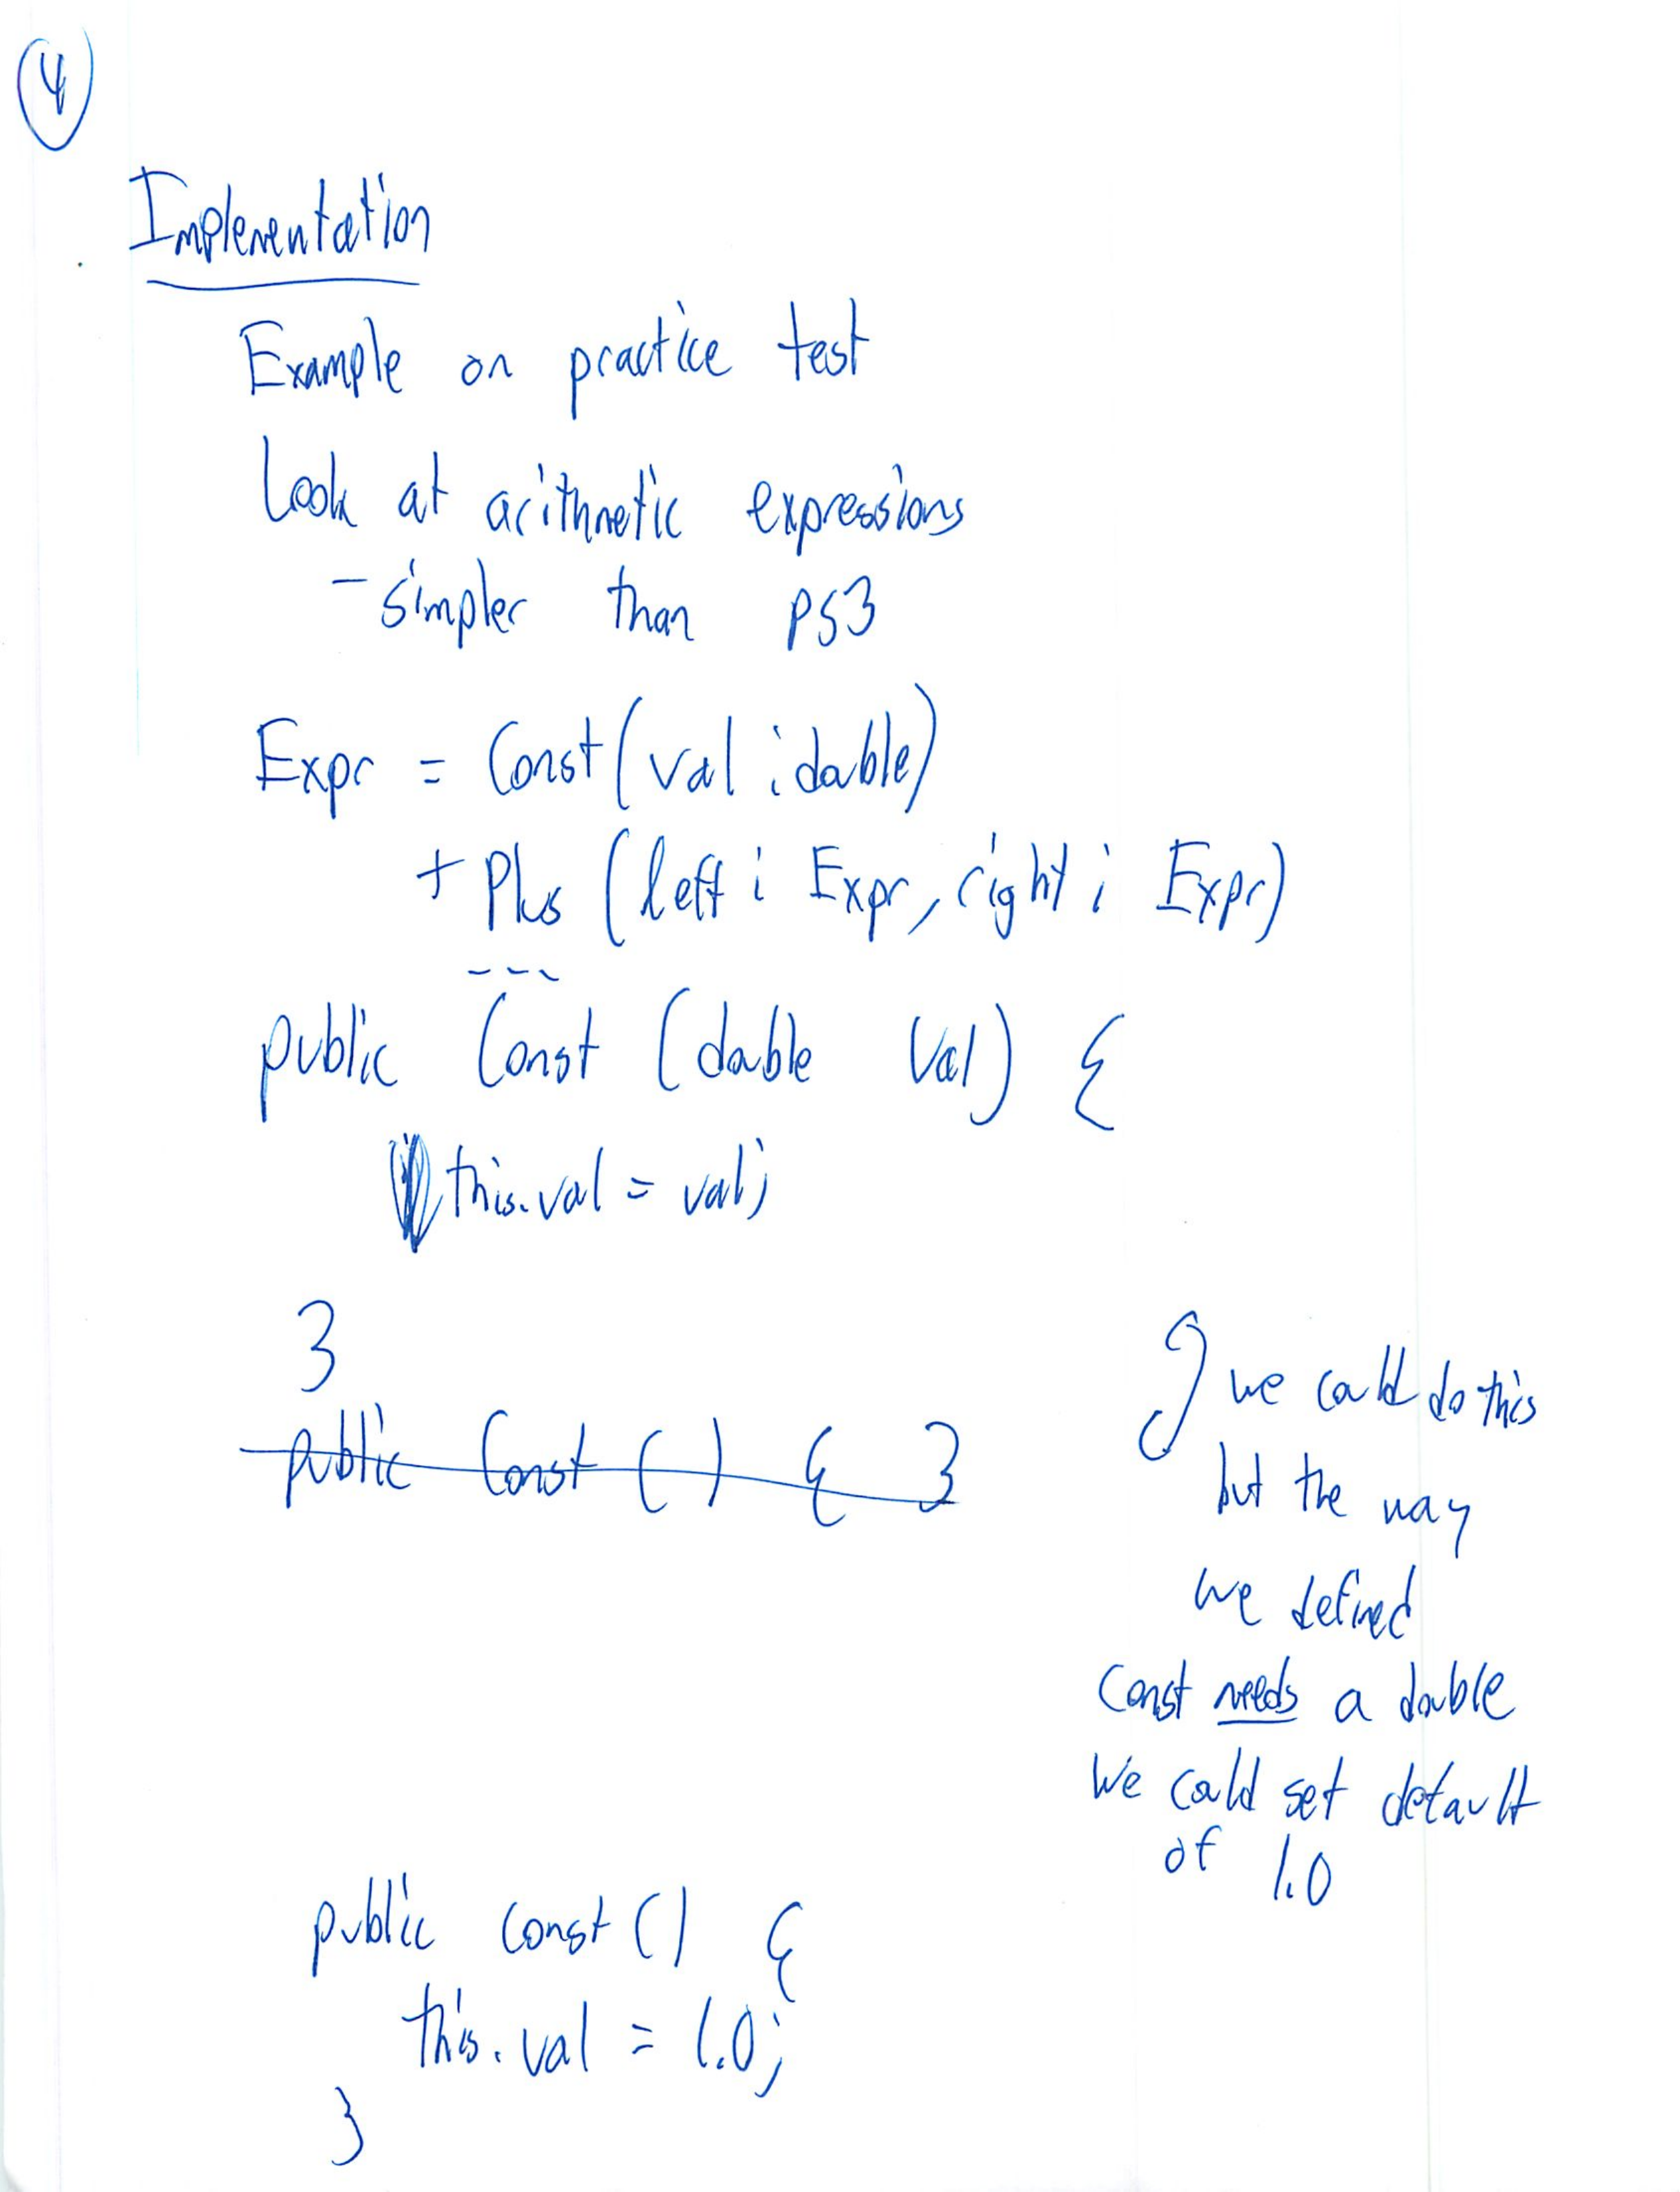 4
Implementation
Example on practice test
Look at arithmetic expressions
- simpler than PS3
Expr = Const(val: double)
+ Plus (left: Expr, right: Expr)
---
public Const (double val) {
this.val = val;
}
public Const () { }
we could do this
but the way
we defined
Const needs a double
We could set default
of 1.0
public const () {
this.val = 1.0;
}